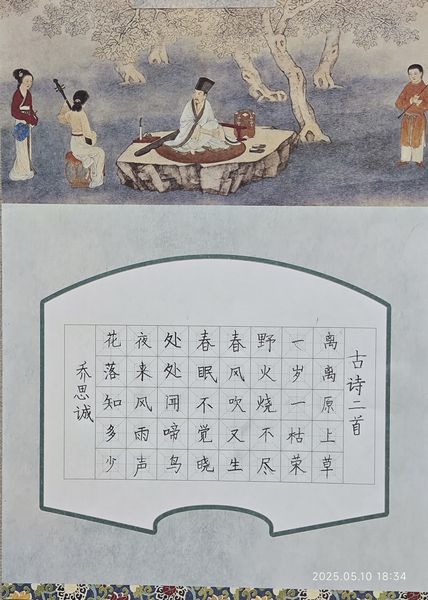 古诗二首
离离原上草
一岁一枯荣
野火烧不尽
春风吹又生
春眠不觉晓
处处闻啼鸟
夜来风雨声
花落知多少
乔思诚
2025.05.10 18:34